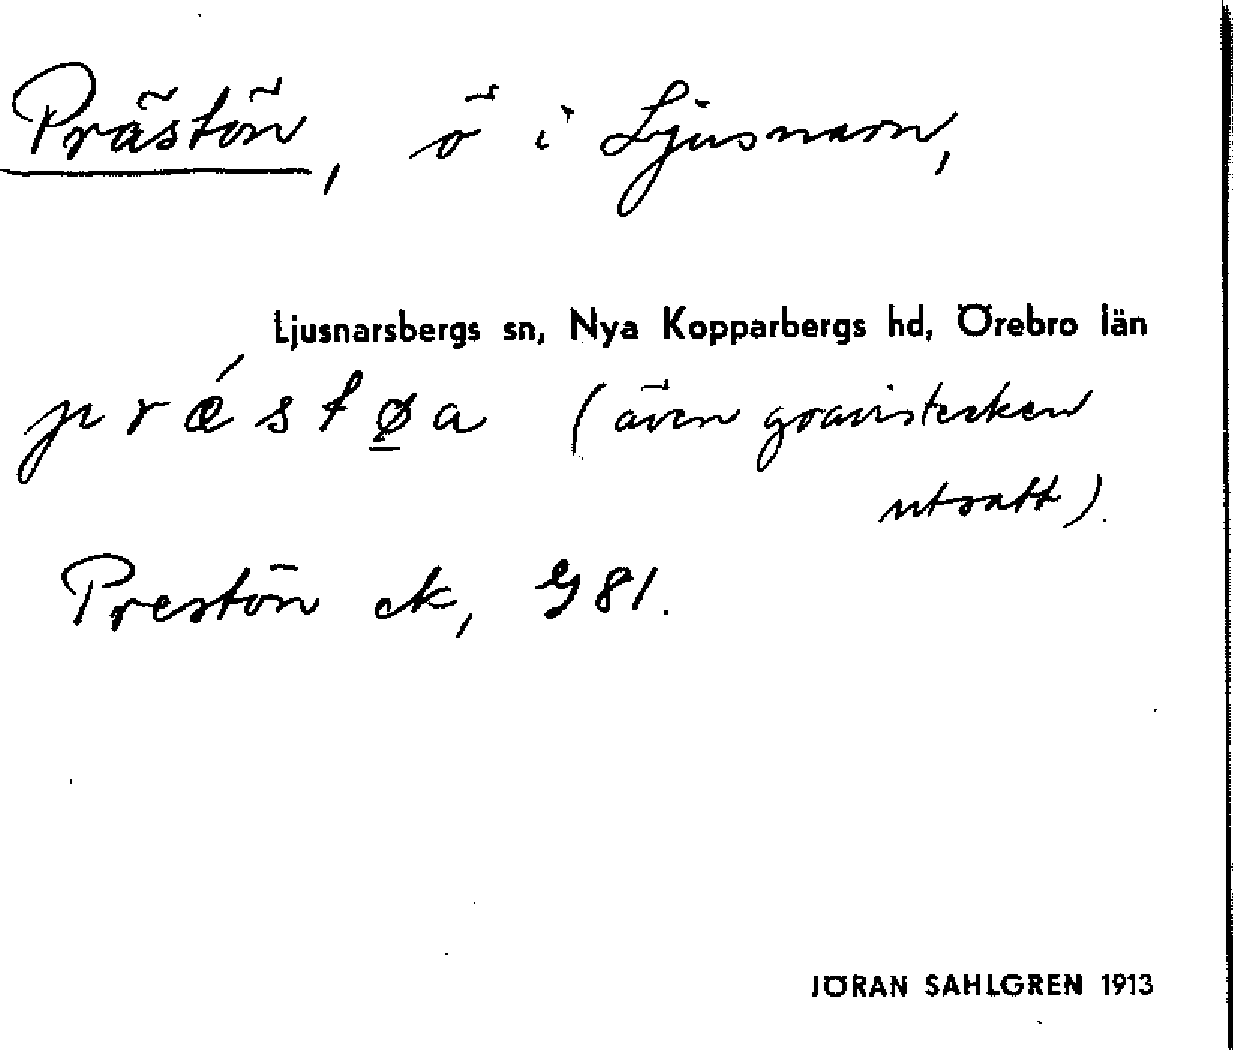 Prästön, ö i Ljusnaren,
Ljusnarsbergs sn, Nya Kopparbergs hd, Örebro län
prǽstø̲a (även gravistecken
utsatt).
Prestön ek, G 81.
JÖRAN SAHLGREN 1913